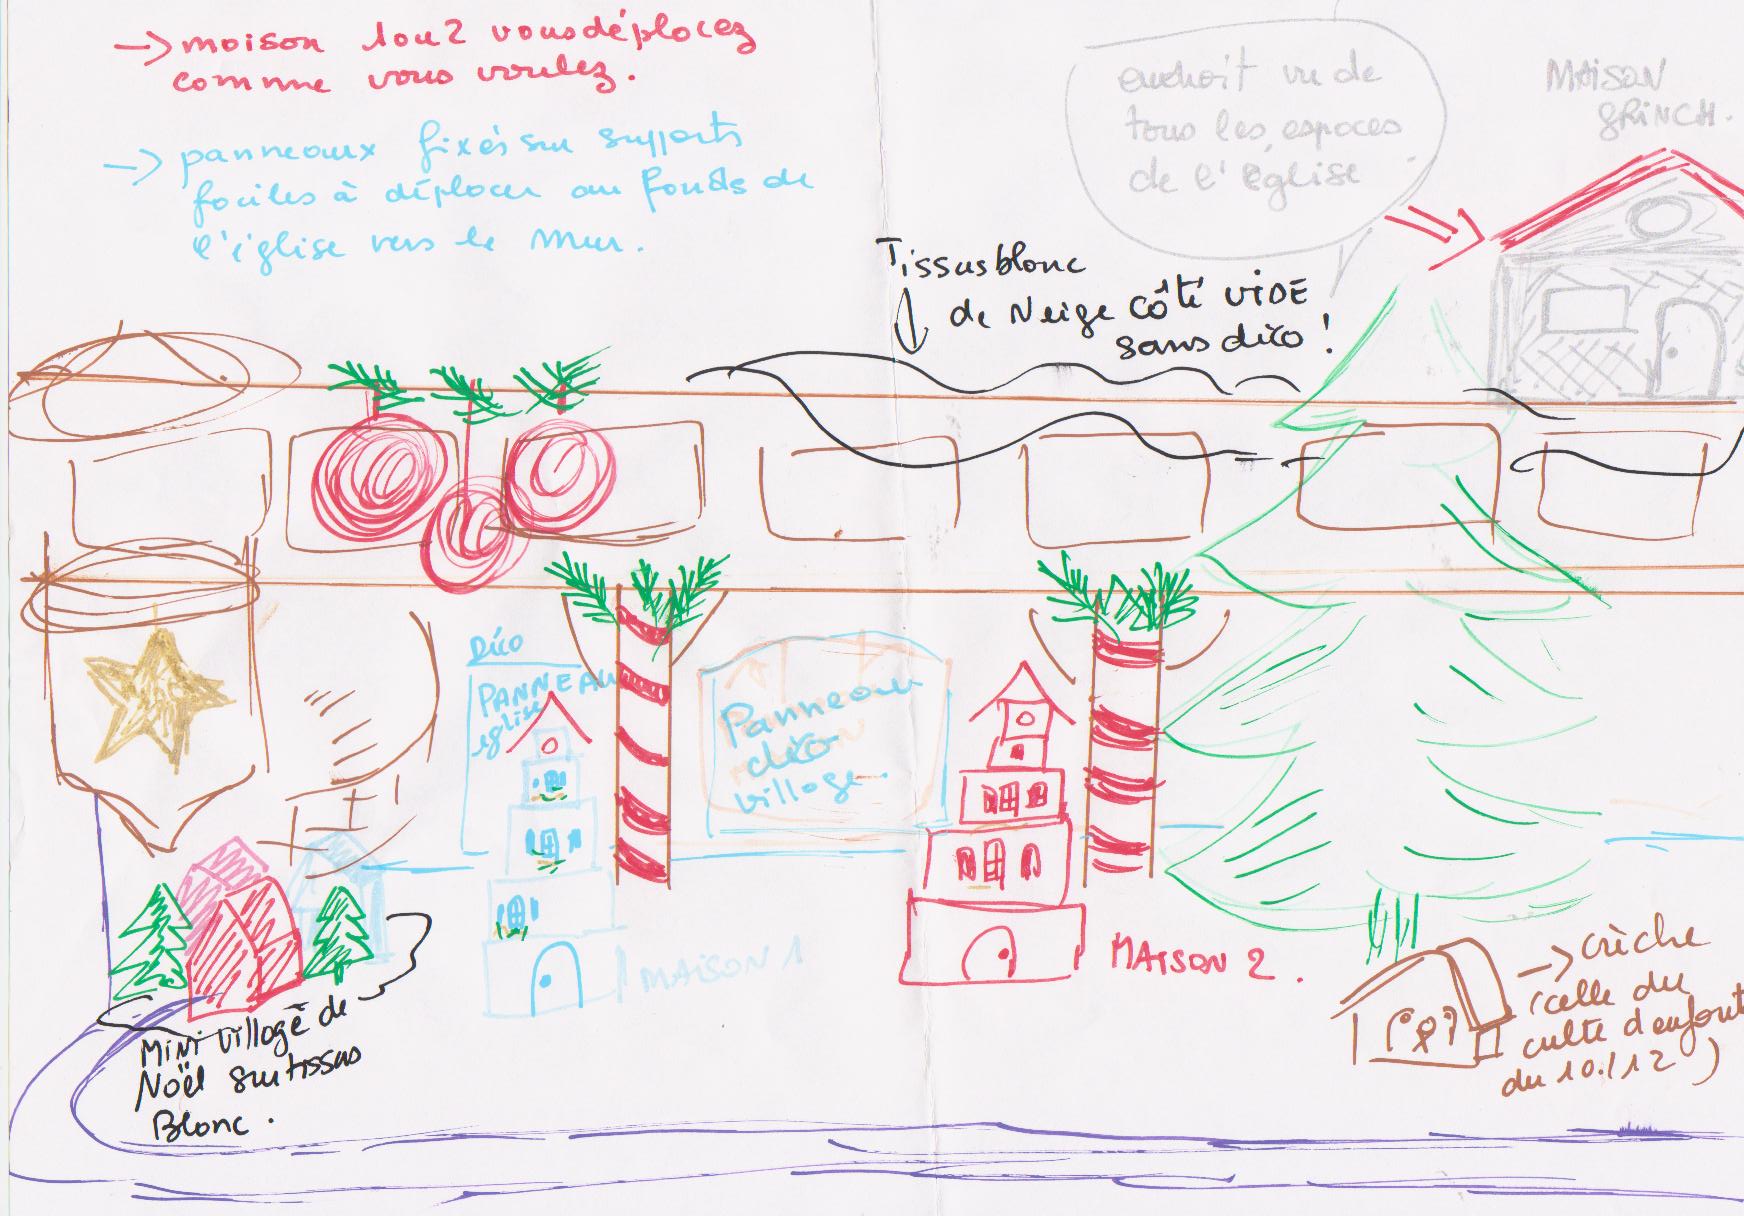 → maison 1ou2 vous déplacez
comme vous voulez.
→ panneaux fixés sur supports
faciles à déplacer au fonds de
l'église vers le mur.
endroit vu de
tous les espaces
de l'église
MAISON
GRINCH.
Tissus blanc
de Neige côté VIDE
sans déco !
Déco
PANNEAU
église
Panneau
déco
village
MAISON 1
MAISON 2 .
→ crèche
(celle du
culte d'enfant
du 10/12 )
Mini village de
Noël sur tissas
Blanc .